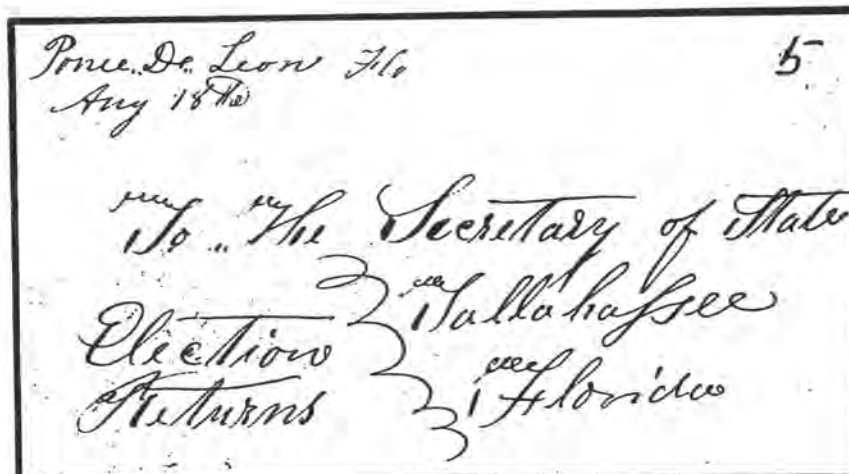 Ponce De Leon Fla
5
Aug 18th
To The Secretary of State
Tallahassee
Election
Florida
Returns